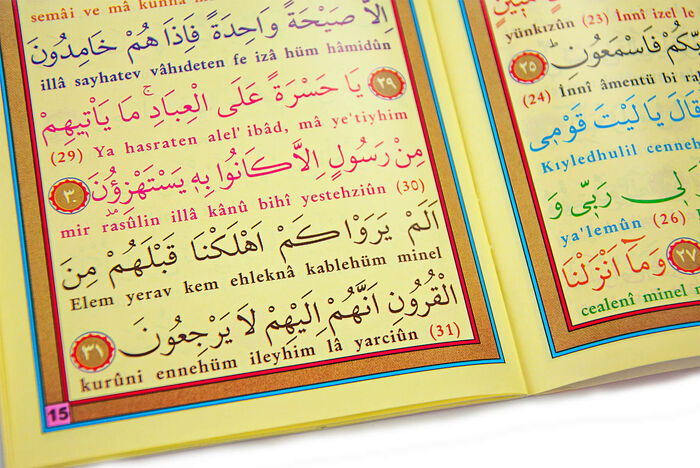 مُبٖينٍ
yünkızûn (23) İnnî izel le
بِّكُمْ فَاسْمَعُونِ ٢٥
(24) İnnî âmentü bi ra
قَالَ يَا لَيْتَ قَوْمٖى
Kıyledhulil cenneh
لٖى رَبّٖى وَ
ya'lemûn (26)
٢٧ وَمَٓا اَنْزَلْنَا
cealenî minel m
semâi ve mâ künnâ m
اِلَّا صَيْحَةً وَاحِدَةً فَاِذَا هُمْ خَامِدُونَ
illâ sayhatev vâhıdeten fe izâ hüm hâmidûn
٢٩ يَا حَسْرَةً عَلَى الْعِبَادِۚ مَا يَاْتٖيهِمْ
(29) Ya hasraten alel' ibâd, mâ ye'tiyhim
مِنْ رَسُولٍ اِلَّا كَانُوا بِهٖ يَسْتَهْزِؤُ۫نَ ٣٠
mir rasûlin illâ kânû bihî yestehziûn (30)
اَلَمْ يَرَوْا كَمْ اَهْلَكْنَا قَبْلَهُمْ مِنَ
Elem yerav kem eheleknâ kablehüm minel
الْقُرُونِ اَنَّهُمْ اِلَيْهِمْ لَا يَرْجِعُونَ ٣١
kurûni ennehüm ileyhim lâ yarciûn (31)
15